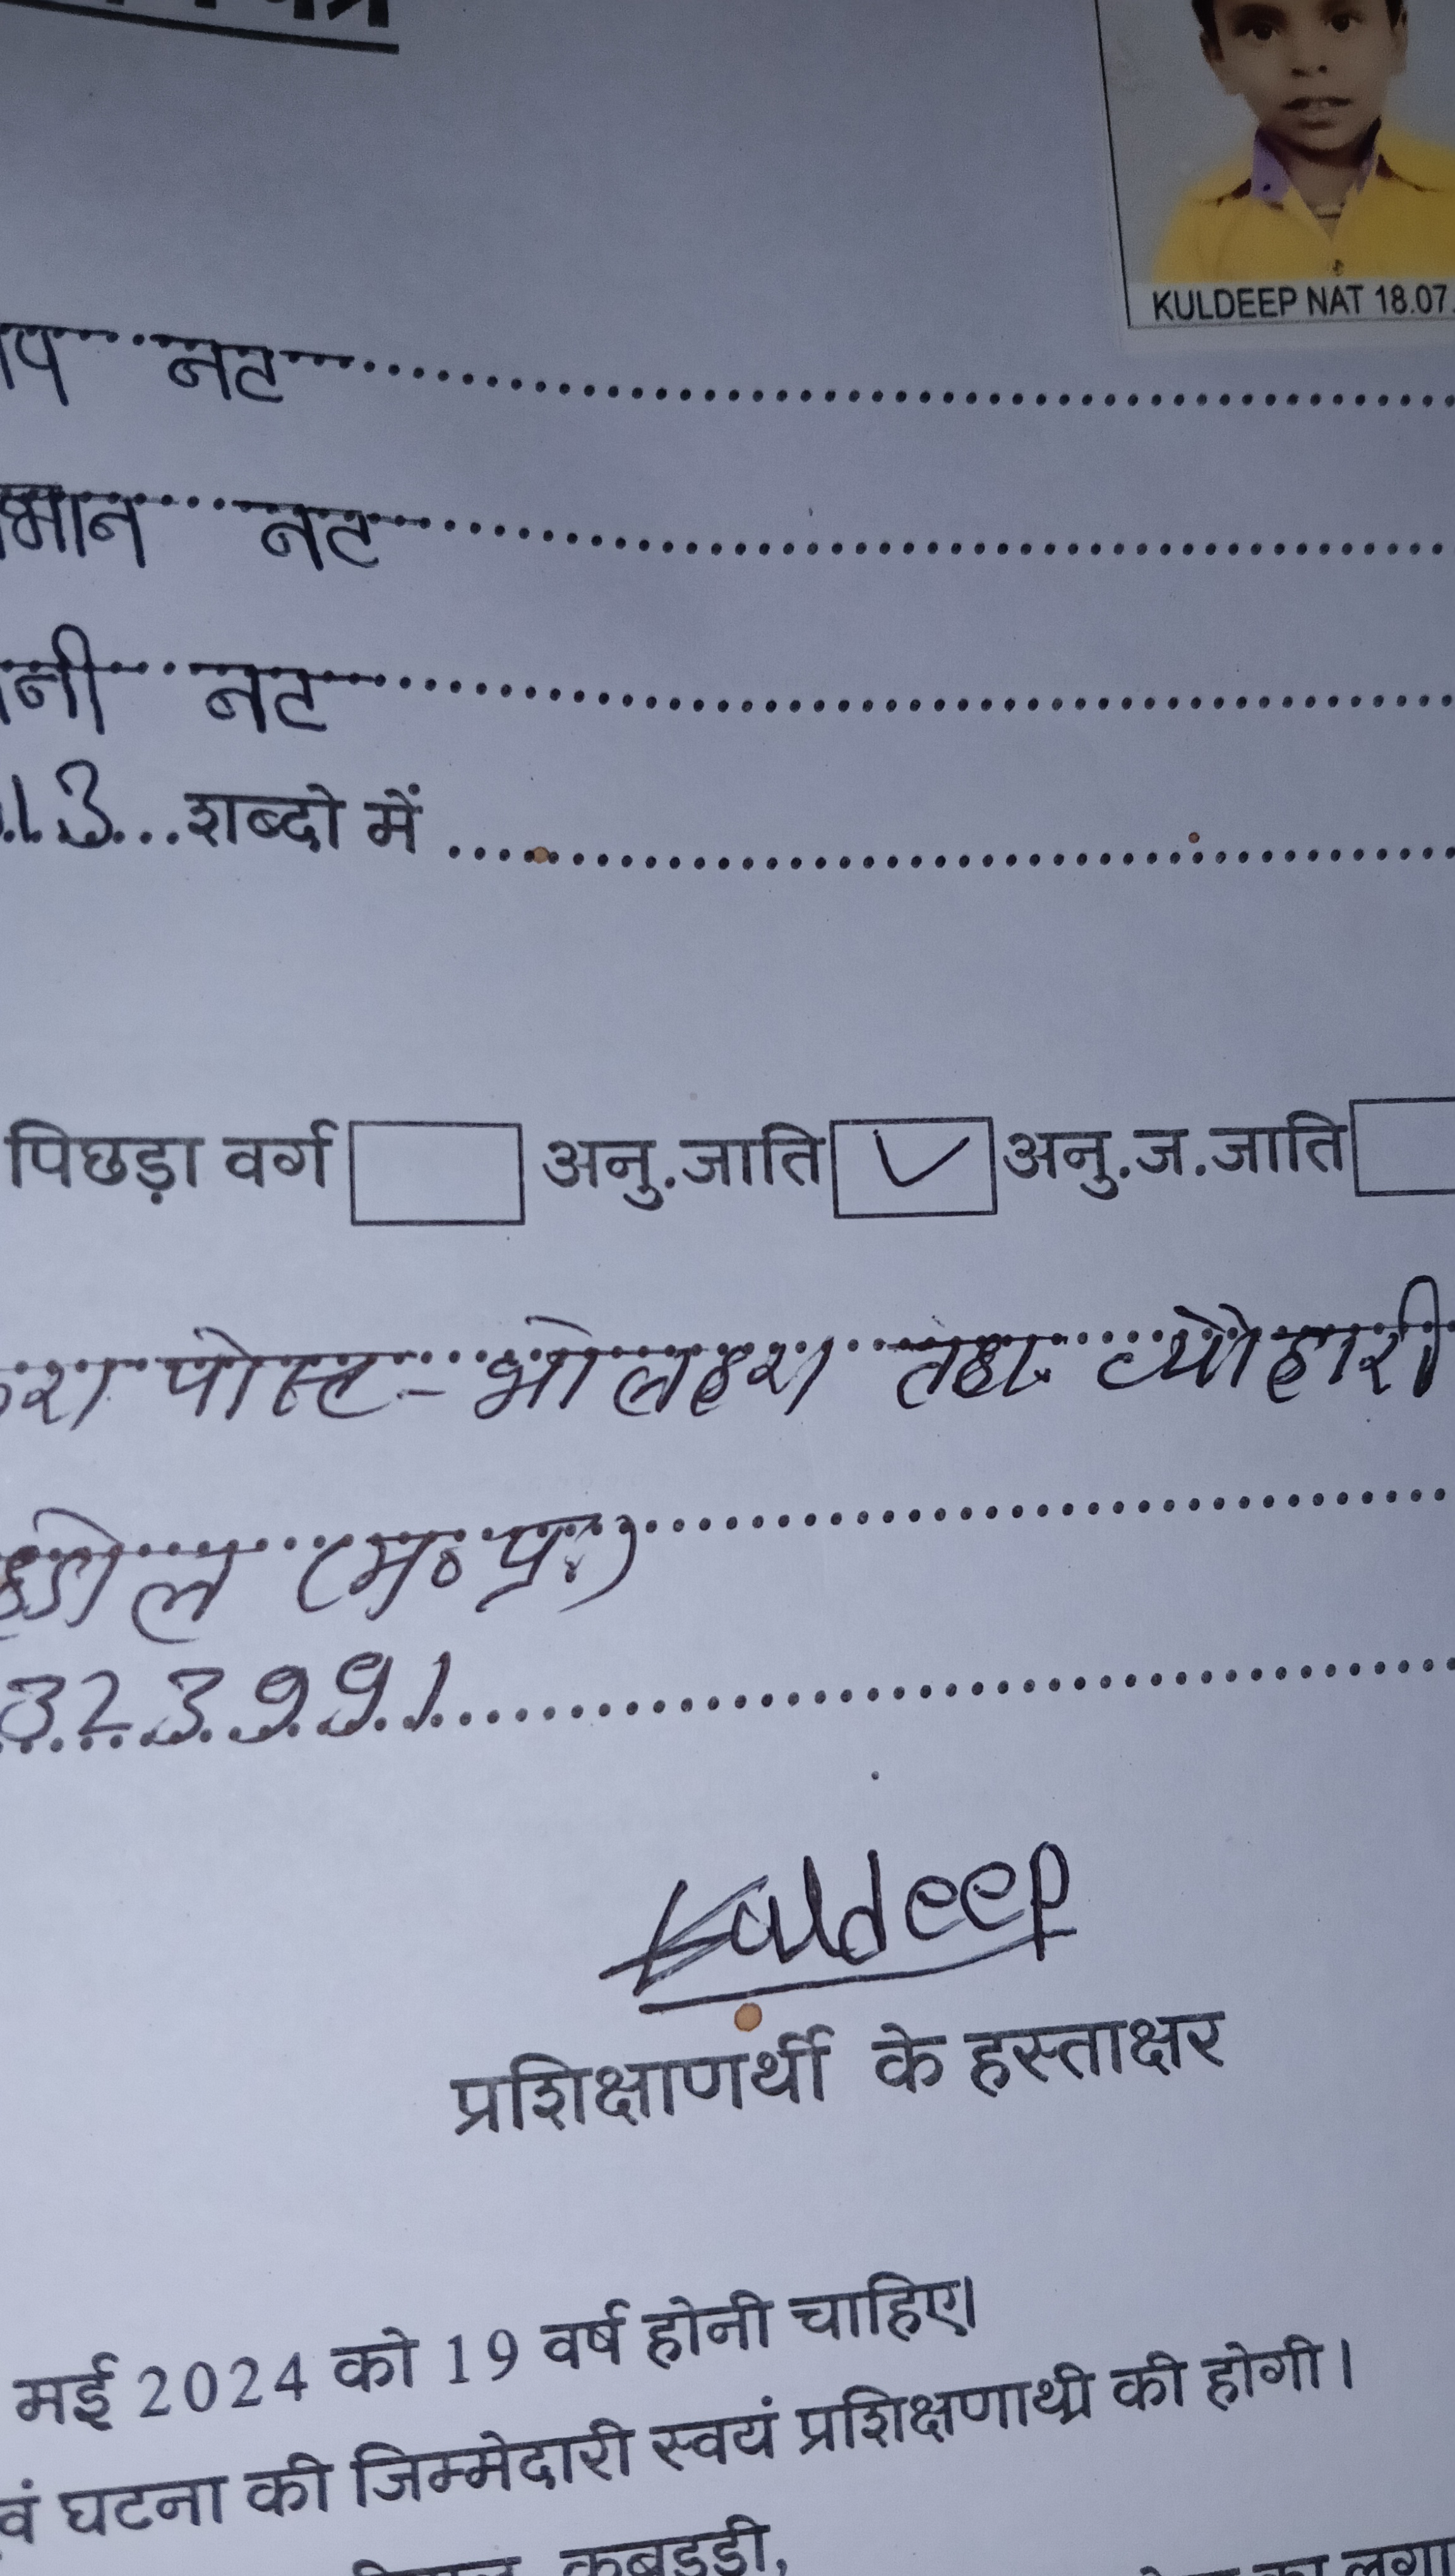 KULDEEP NAT 18.07.
नट
भान नट
नी नट
13...शब्दो में
पिछड़ा वर्ग अनु.जाति अनु.ज.जाति
पोस्ट - भोलहरा तह. व्यौहारी
(म०प्र.)
323991
Kuldeep
प्रशिक्षाणर्थी के हस्ताक्षर
मई 2024 को 19 वर्ष होनी चाहिए।
घटना की जिम्मेदारी स्वयं प्रशिक्षणाथ्री की होगी।
कबड्डी,